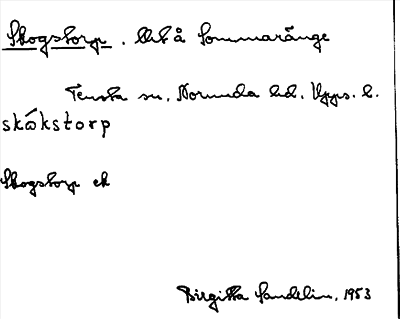 Skogstorp. Ut å Sommaränge
Tensta sn. Norunda hd. Upps. l.
skὼkstorp
Skogstorp ek
Birgitta Sundelin, 1953